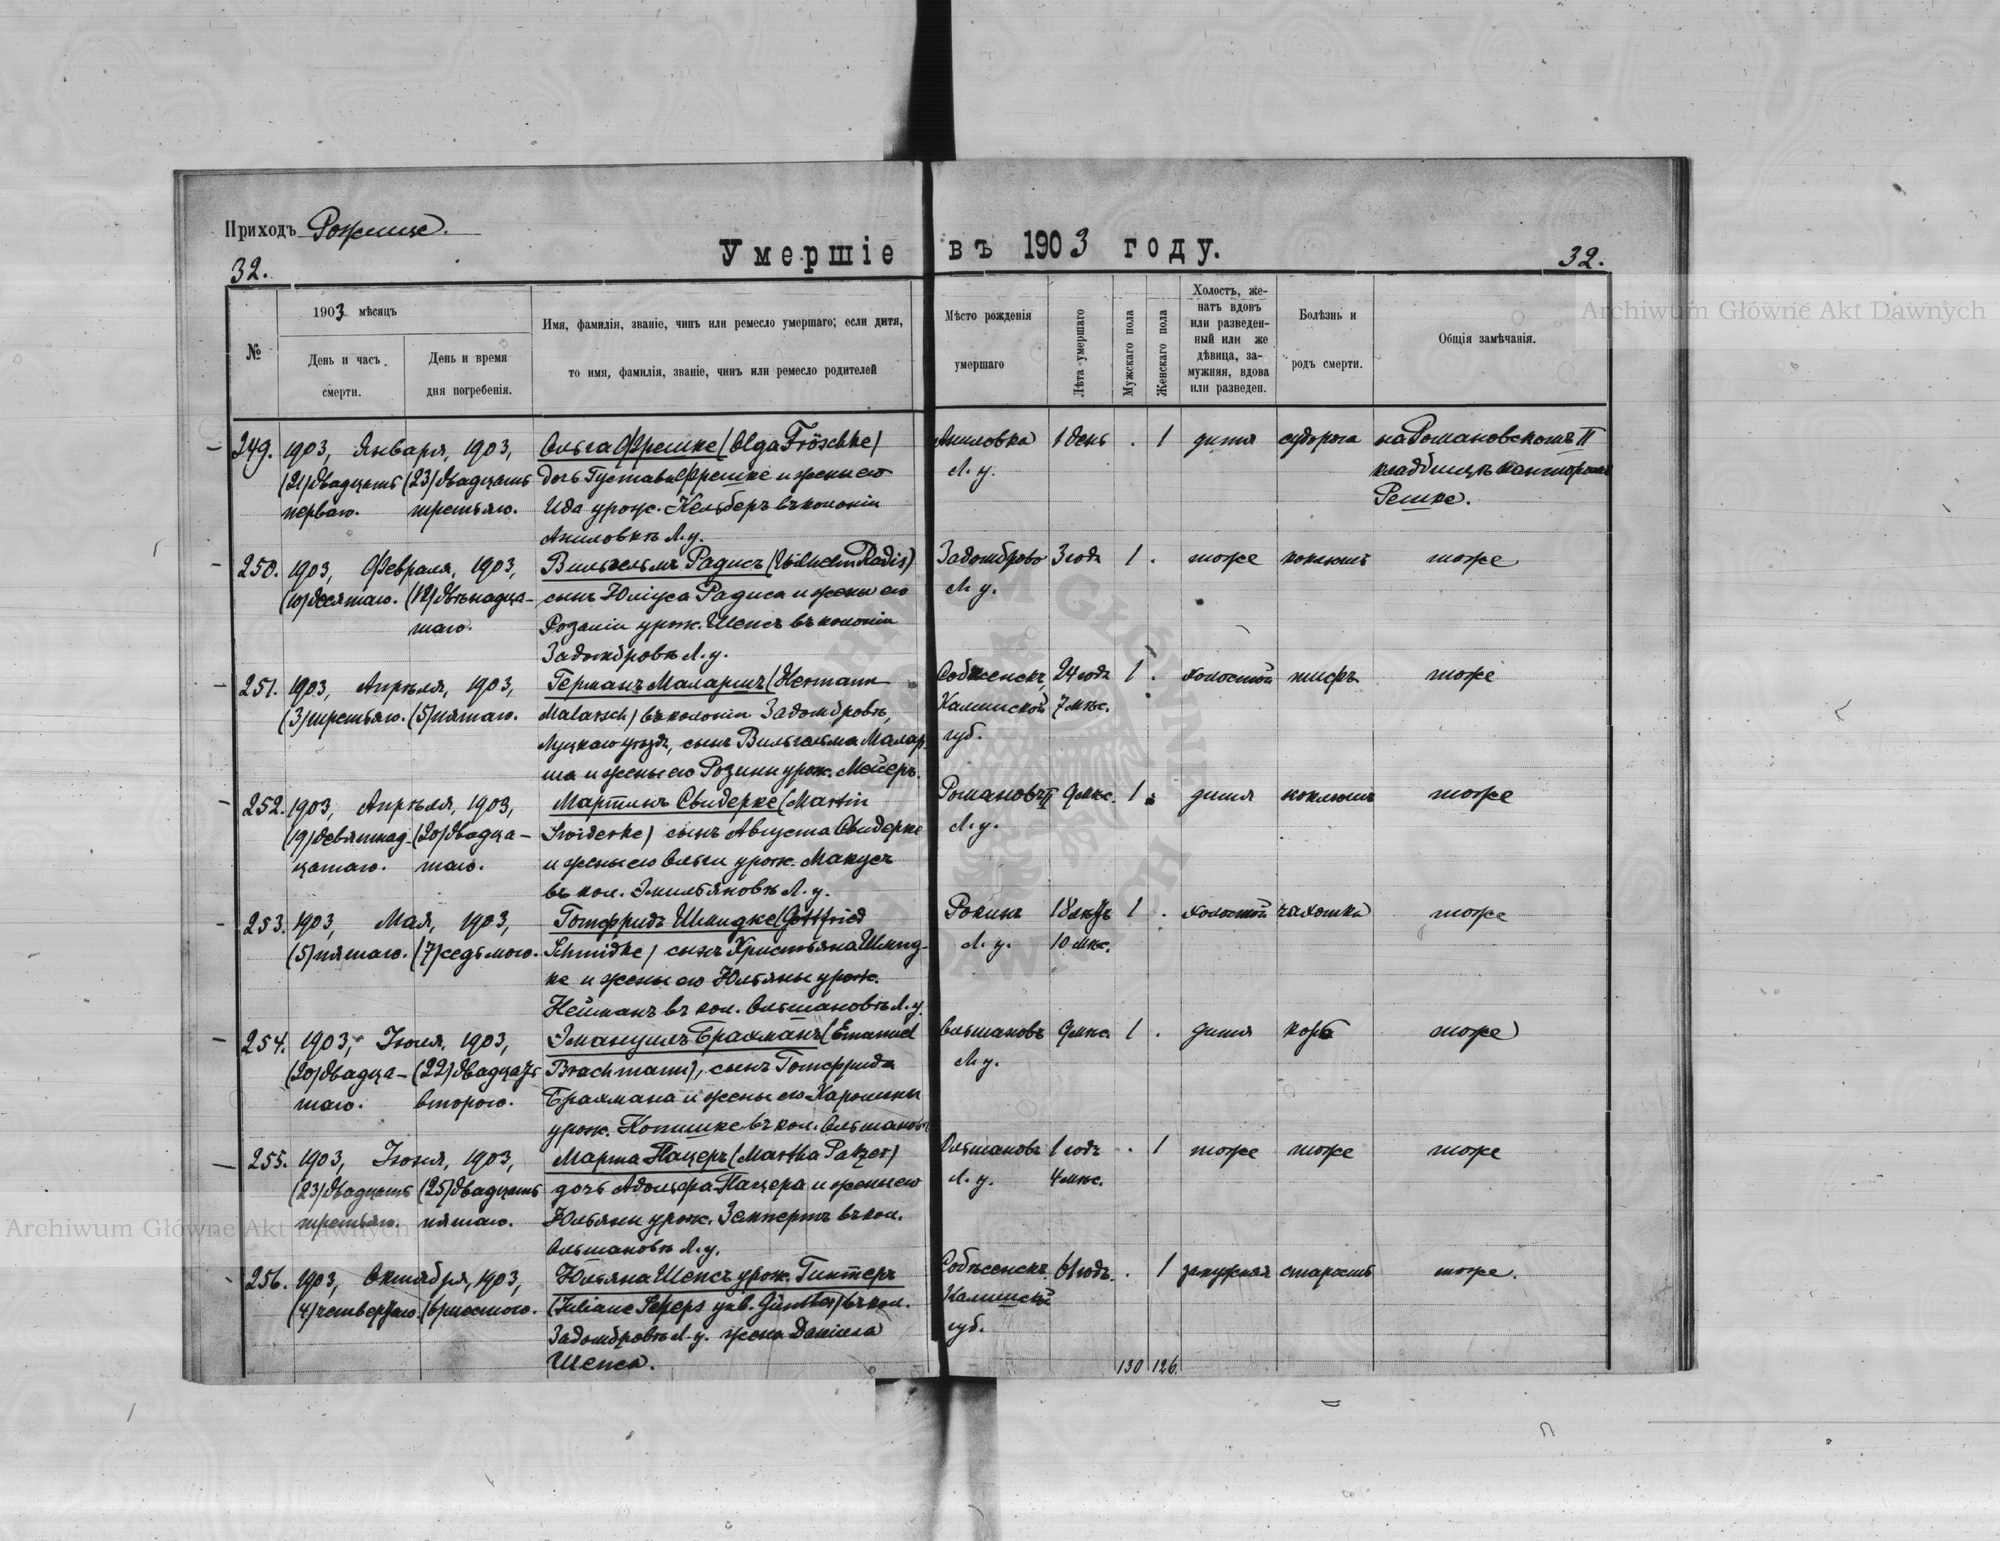 Приходъ Рожище.
Умершіе въ 1903 году.
32.
32.
№
1903 мѣсяцъ
День и часъ смерти.
День и время дня погребенія.
Имя, фамилія, званіе, чинъ или ремесло умершаго; если дитя,
то имя, фамилія, званіе, чинъ или ремесло родителей
Мѣсто рожденія
умершаго
Лѣта умершаго
Мужскаго пола
Женскаго пола
Холостъ, же-
натъ вдовъ
или разведен-
ный или же
дѣвица, за-
мужняя, вдова
или разведен.
Болѣзнь и
родъ смерти.
Общія замѣчанія.
Archiwum Główne Akt Dawnych
249. 1903, Января, 1903, Ольга Фрешке (Olga Fröschke) Аниловка 1 день . 1 дитя судорога на Романовскомъ II
(21) двадцать (23) двадцать дочь Густава Фрешке и жены его Л. у. кладбищѣ канторомъ
перваго. третьяго. Ида урож. Кельберъ въ колоніи Решке.
Аниловкѣ Л. у.
250. 1903, Февраля, 1903, Вильгельмъ Радисъ (Wilhelm Radis) Задомброво 3 года 1 . тоже коклюшъ тоже
(10) десятаго. (12) двѣнадца- сынъ Юліуса Радиса и жены его Л. у.
таго. Розаліи урож. Шепсъ въ колоніи
Задомбровѣ Л. у.
251. 1903, Апрѣля, 1903, Германъ Маларшъ (Hermann Собженскъ, 24 года 1 . холостой тифъ тоже
(3) третьяго. (5) пятаго. Malarsch) въ колоніи Задомбровѣ, Калишской 7 мѣс.
Луцкаго уѣзда, сынъ Вильгельма Малар- губ.
ша и жены его Розины урож. Мейеръ.
252. 1903, Апрѣля, 1903, Мартинъ Свидерке (Martin Романовъ II 9 мѣс. 1 . дитя коклюшъ тоже
(19) девятнад- (20) двадца- Swiderke) сынъ Августа Свидерке Л. у.
цатаго. таго. и жены его Ольги урож. Макусъ
въ кол. Эмильяновѣ Л. у.
253. 1903, Мая, 1903, Готфридъ Шмидке (Gottfried 18 10 мѣс. 1 . холостой чахотка тоже
(5) пятаго. (7) седьмого. Schmidke) сынъ Христьяна Шмид- Л. у.
ке и жены его Юльяны урож.
Нейманъ въ кол. Ольшановѣ Л. у.
254. 1903, Іюля, 1903, Эмануилъ Брахманъ (Emanuel Ольшановъ 9 мѣс. 1 . дитя корь тоже
(20) двадца- (22) двадцать Brachmann), сынъ Готфрида Л. у.
таго. второго. Брахмана и жены его Каролины
урож. въ кол. Ольшановѣ
255. 1903, 1903, Марта Пацеръ (Martha Patzer) Ольшановъ 1 годъ . 1 тоже тоже тоже
(23) двадцать (25) двадцать дочь Адольфа Пацера и жены его Л. у. 4 мѣс.
третьяго. пятаго. Юльяны урож. въ кол.
Ольшановѣ Л. у.
256. 1903, Октября, 1903, Юльяна Шепсъ урож. Гинтеръ Собженскъ 61 годъ. . 1 замужняя старость тоже.
(4) четвертаго. (6) шестого. (Juliane Scheps geb. Günther) въ кол. Калишской
Задомбровѣ Л. у. жена Даніила губ.
Шепса.
130 126.
Archiwum Główne Akt Dawnych